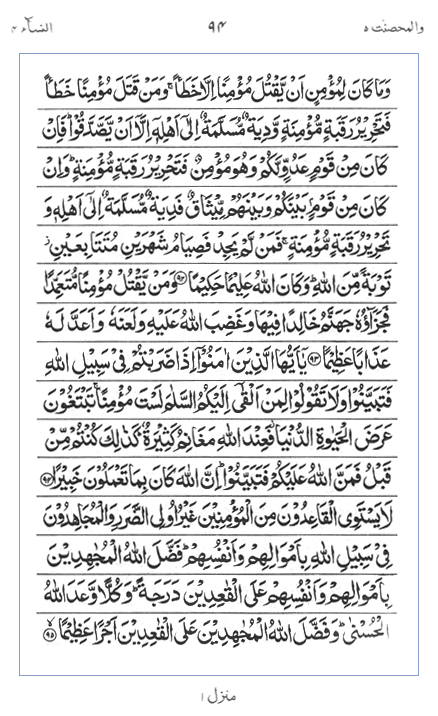 والمحصنت ۵ ۹۴ النسآء ۴
وَمَا كَانَ لِمُؤْمِنٍ اَنْ يَّقْتُلَ مُؤْمِنًا اِلَّا خَطَـًٔا ۚ وَمَنْ قَتَلَ مُؤْمِنًا خَطَـًٔا
فَتَحْرِيْرُ رَقَبَةٍ مُّؤْمِنَةٍ وَّدِيَةٌ مُّسَلَّمَةٌ اِلٰٓى اَهْلِهٖٓ اِلَّآ اَنْ يَّصَّدَّقُوْا ؕ فَاِنْ
كَانَ مِنْ قَوْمٍ عَدُوٍّ لَّكُمْ وَهُوَ مُؤْمِنٌ فَتَحْرِيْرُ رَقَبَةٍ مُّؤْمِنَةٍ ؕ وَاِنْ
كَانَ مِنْ قَوْمٍۢ بَيْنَكُمْ وَبَيْنَهُمْ مِّيْثَاقٌ فَدِيَةٌ مُّسَلَّمَةٌ اِلٰٓى اَهْلِهٖ وَ
تَحْرِيْرُ رَقَبَةٍ مُّؤْمِنَةٍ ۚ فَمَنْ لَّمْ يَجِدْ فَصِيَامُ شَهْرَيْنِ مُتَتَابِعَيْنِ ز
تَوْبَةً مِّنَ اللّٰهِ ؕ وَكَانَ اللّٰهُ عَلِيْمًا حَكِيْمًا ﴿۹۲﴾ وَمَنْ يَّقْتُلْ مُؤْمِنًا مُّتَعَمِّدًا
فَجَزَآؤُهٗ جَهَنَّمُ خَالِدًا فِيْهَا وَغَضِبَ اللّٰهُ عَلَيْهِ وَلَعَنَهٗ وَاَعَدَّ لَهٗ
عَذَابًا عَظِيْمًا ﴿۹۳﴾ يٰٓاَيُّهَا الَّذِيْنَ اٰمَنُوْٓا اِذَا ضَرَبْتُمْ فِيْ سَبِيْلِ اللّٰهِ
فَتَبَيَّنُوْا وَلَا تَقُوْلُوْا لِمَنْ اَلْقٰٓى اِلَيْكُمُ السَّلٰمَ لَسْتَ مُؤْمِنًا ۚ تَبْتَغُوْنَ
عَرَضَ الْحَيٰوةِ الدُّنْيَا ؗ فَعِنْدَ اللّٰهِ مَغَانِمُ كَثِيْرَةٌ ؕ كَذٰلِكَ كُنْتُمْ مِّنْ
قَبْلُ فَمَنَّ اللّٰهُ عَلَيْكُمْ فَتَبَيَّنُوْا ؕ اِنَّ اللّٰهَ كَانَ بِمَا تَعْمَلُوْنَ خَبِيْرًا ﴿۹۴﴾
لَا يَسْتَوِى الْقَاعِدُوْنَ مِنَ الْمُؤْمِنِيْنَ غَيْرُ اُولِى الضَّرَرِ وَالْمُجَاهِدُوْنَ
فِيْ سَبِيْلِ اللّٰهِ بِاَمْوَالِهِمْ وَاَنْفُسِهِمْ ؕ فَضَّلَ اللّٰهُ الْمُجٰهِدِيْنَ
بِاَمْوَالِهِمْ وَاَنْفُسِهِمْ عَلَى الْقٰعِدِيْنَ دَرَجَةً ؕ وَكُلًّا وَّعَدَ اللّٰهُ
الْحُسْنٰى ؕ وَفَضَّلَ اللّٰهُ الْمُجٰهِدِيْنَ عَلَى الْقٰعِدِيْنَ اَجْرًا عَظِيْمًا ﴿۹۵﴾
منزل ۱